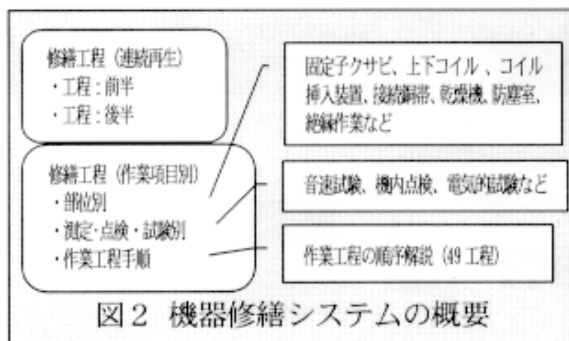 修繕工程（連続再生）
・工程：前半
・工程：後半
修繕工程（作業項目別）
・部位別
・測定・点検・試験別
・作業工程手順
固定子クサビ、上下コイル、コイル
挿入装置、接続銅帯、乾燥機、防塵室、
絶縁作業など
音速試験、機内点検、電気的試験など
作業工程の順序解説（49工程）
図２ 機器修繕システムの概要